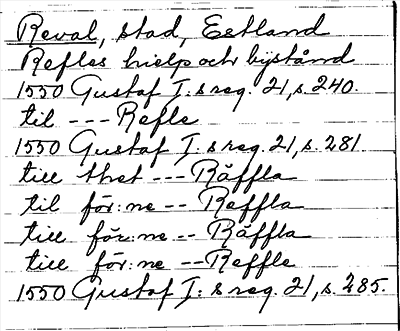 Reval, stad, Estland
Refles hielp och bijstånd
1550 Gustaf I:s reg. 21, s. 240.
til --- Refle
1550 Gustaf I:s reg. 21, s. 281.
till thet --- Räffla
til för:ne -- Reffla
till för:ne -- Räffla
till för:ne -- Reffle
1550 Gustaf I:s reg. 21, s. 285.